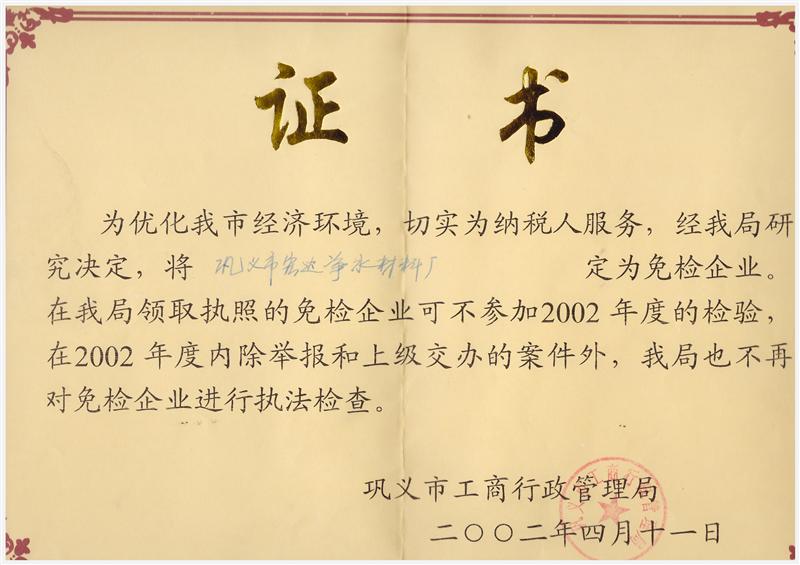 证书
为优化我市经济环境，切实为纳税人服务，经我局研
究决定，将 巩义市宏达净水材料厂 定为免检企业。
在我局领取执照的免检企业可不参加2002年度的检验，
在2002年度内除举报和上级交办的案件外，我局也不再
对免检企业进行执法检查。
巩义市工商行政管理局
二〇〇二年四月十一日
巩义市工商行政管理局